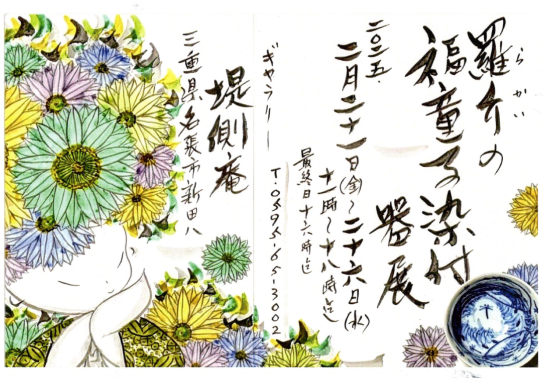 羅介の
らかい
福童子染付
器展
二〇二五.
二月二十一日(金)〜二十六日(水)
十一時〜十八時迄
最終日十六時迄
ギャラリー
T.0595-65-3002
堤側庵
三重県名張市新田八